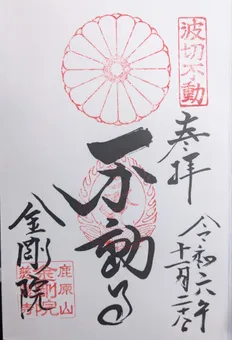 波切不動
奉拝
令和六年
十一月二十
不動
金剛院
鹿原山
金剛院